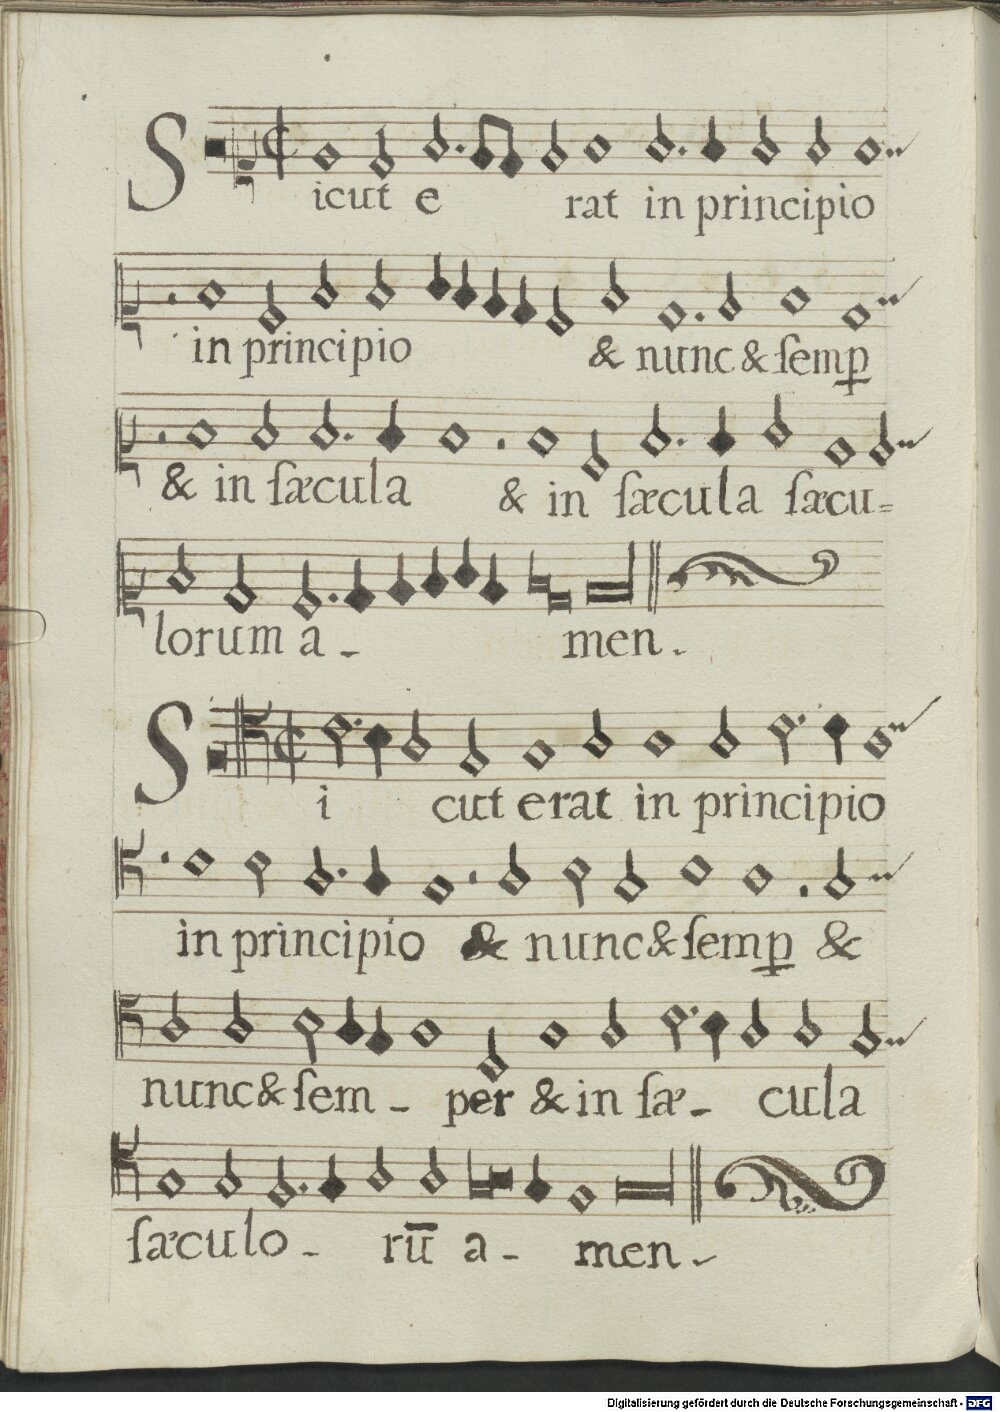 Sicut e rat in principio
in principio & nunc & ſemp̲
& in ſæcula & in ſæcula ſæcu=
lorum a - men.
Si cut erat in principio
in principio & nunc & ſemp̲ &
nunc & ſem - per & in ſæ - cula
ſæculo - rū a - men.
Digitalisierung gefördert durch die Deutsche Forschungsgemeinschaft - DFG